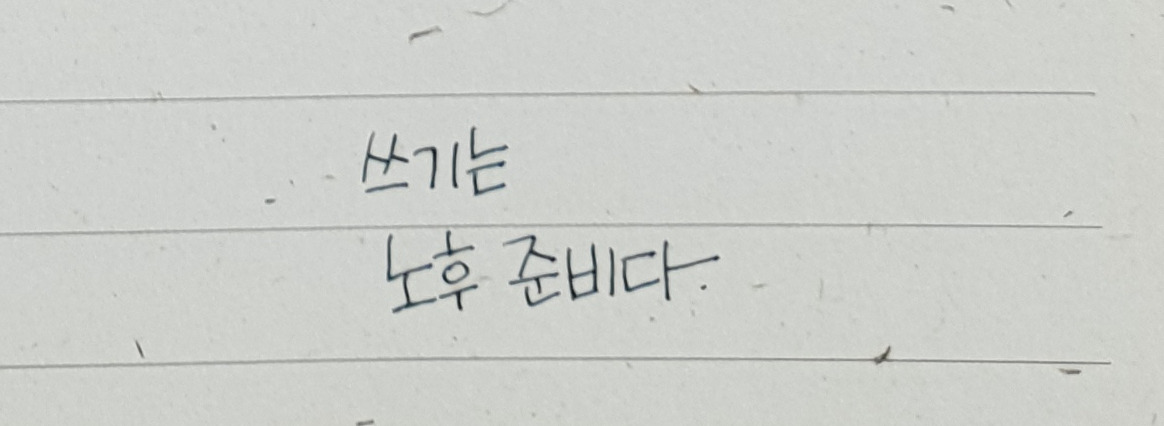 쓰기는
노후 준비다.